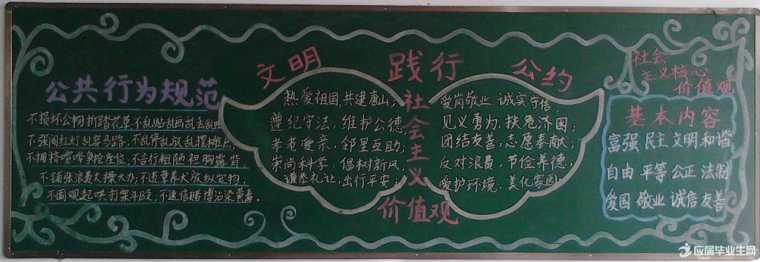 文明 践行 公约
社会主义
价值观
公共行为规范
不损坏公物折踏花草,不乱贴乱画乱丢乱吐
不强闯红灯乱穿马路,不乱停乱放乱摆摊点
不拥挤喧哗争抢座位,不
不铺张浪费大操大办,不违章
不围观起哄打架斗殴,不迷信赌博
热爱祖国,共建唐山,
遵纪守法,维护公德,
孝老爱亲,邻里互助,
崇尚科学,倡树新风,
谦恭礼让,出行平安,
爱岗敬业,诚实守信,
见义勇为,扶危济困,
团结友善,志愿奉献,
反对浪费,节俭养德,
爱护环境,美化家园
社会
主义核心
价值观
基本内容
富强 民主 文明 和谐
自由 平等 公正 法制
爱国 敬业 诚信 友善
应届毕业生网